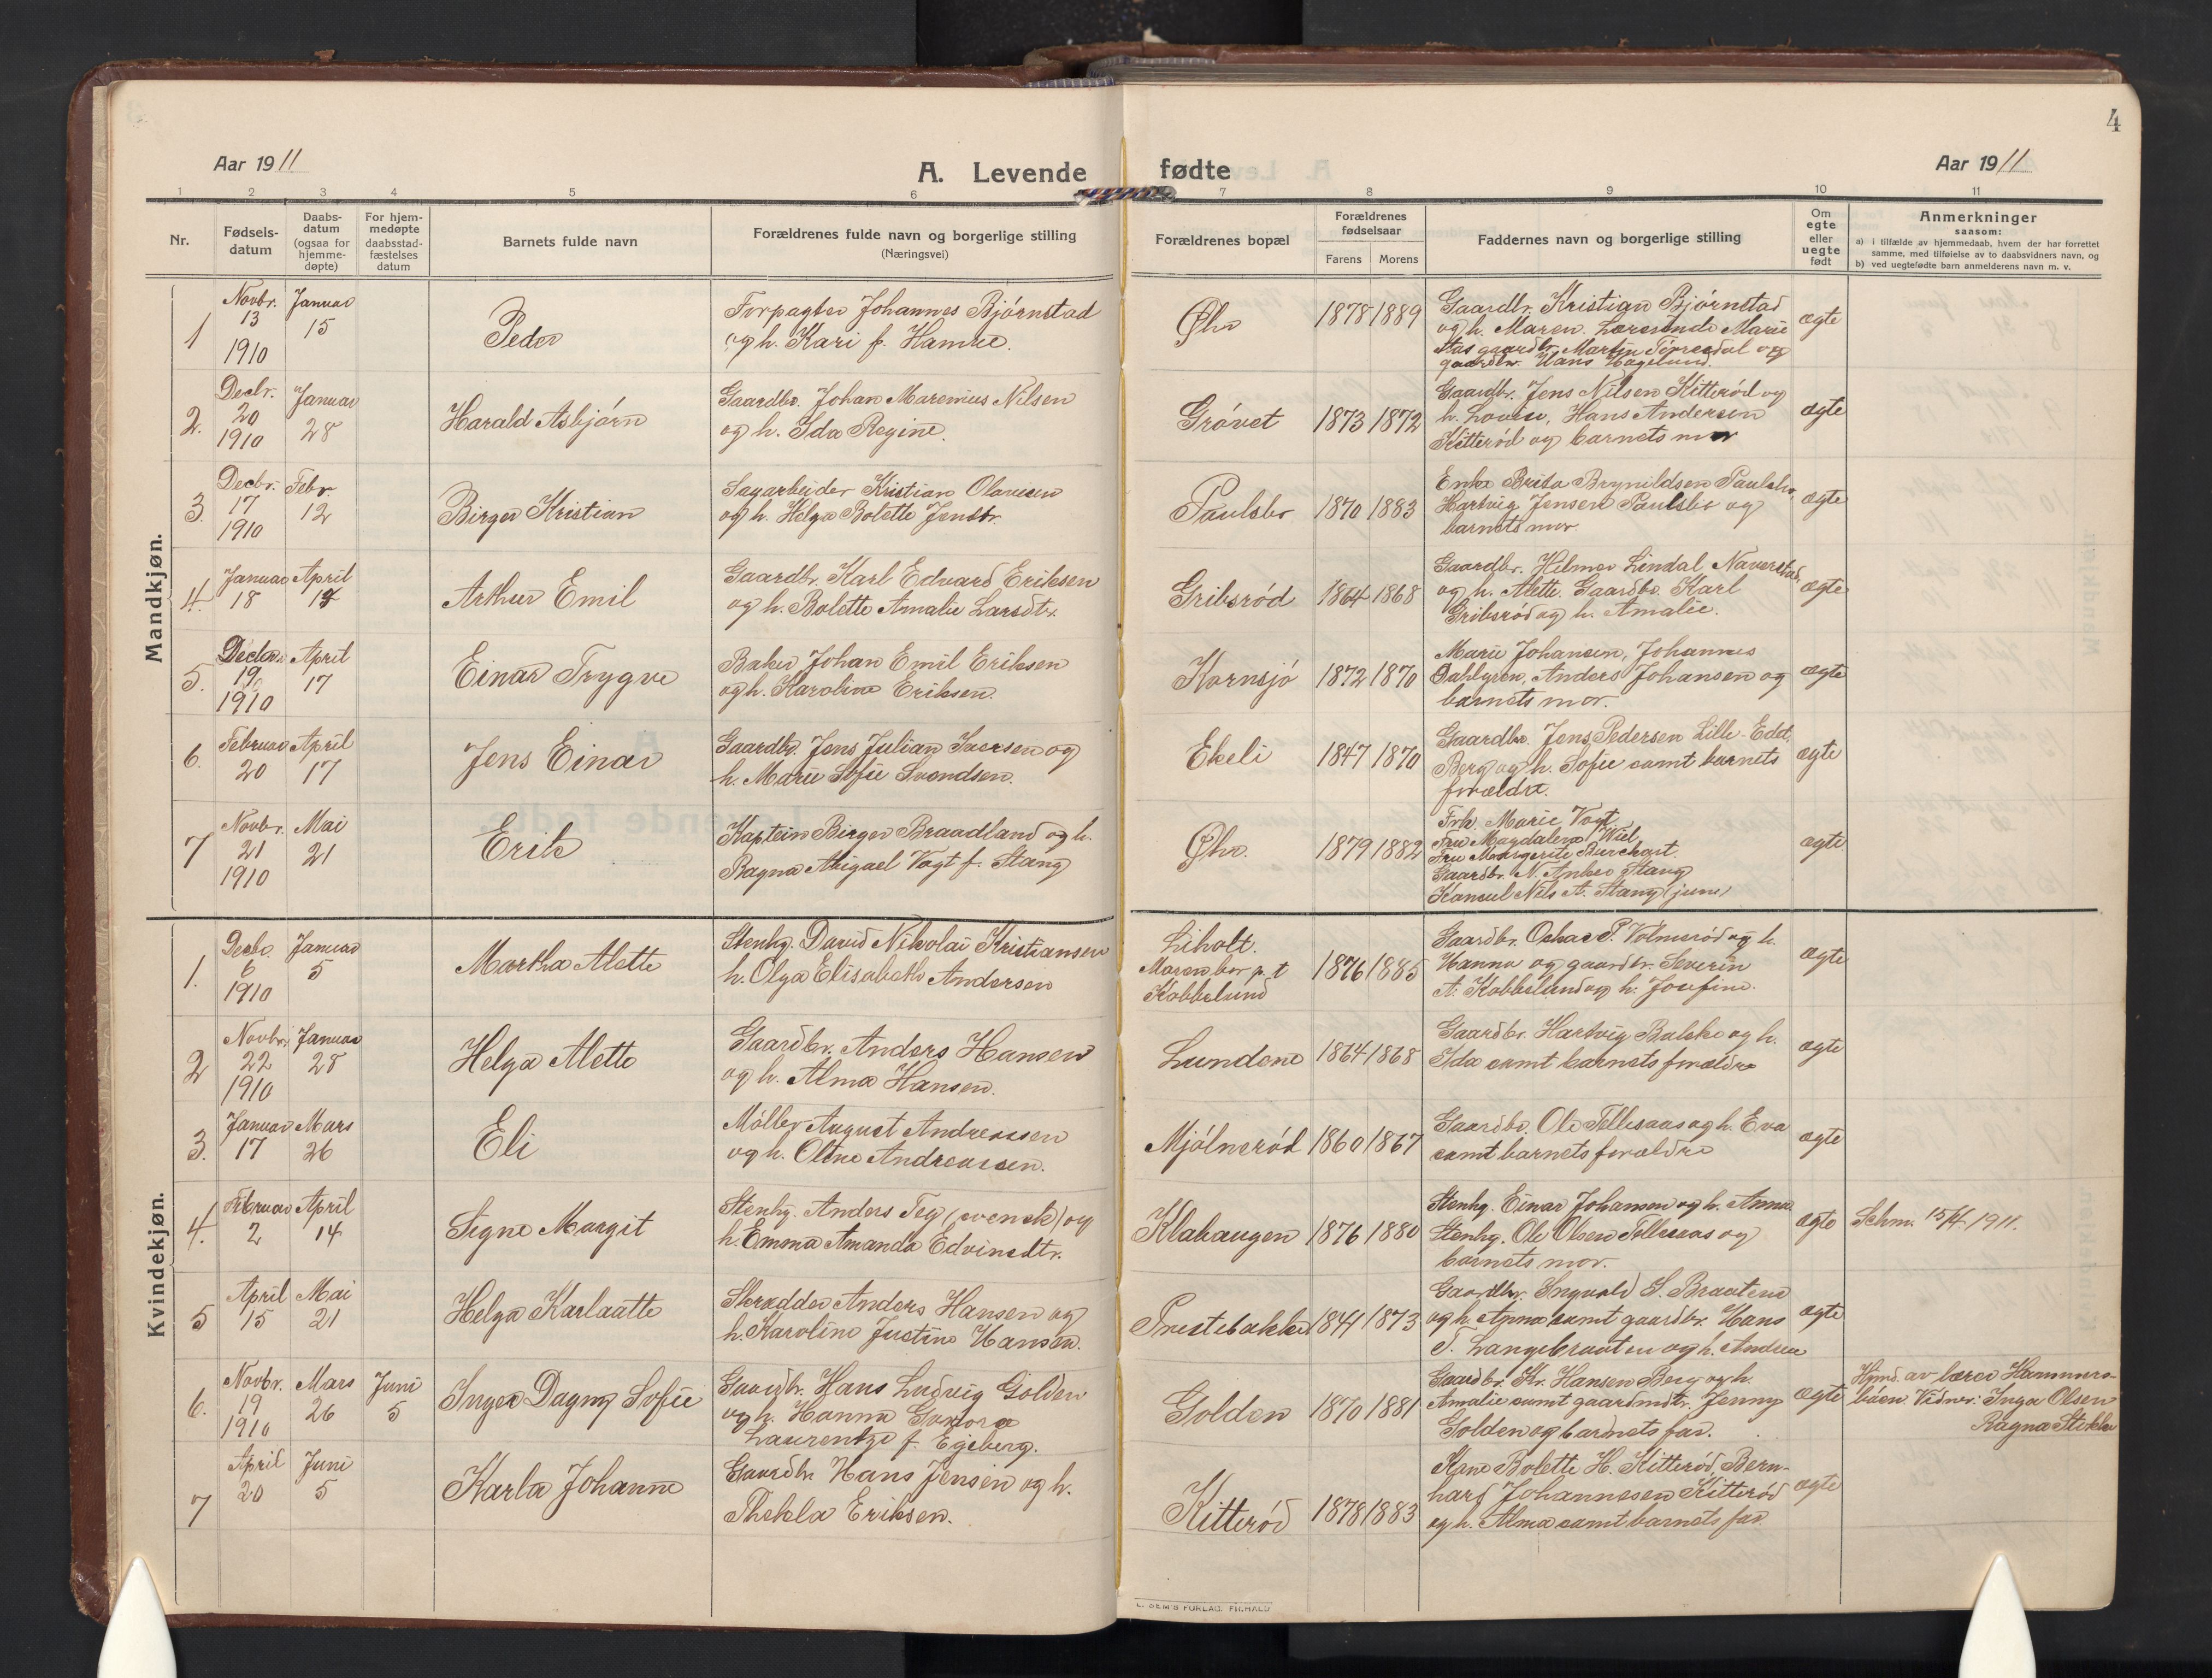 4
Aar 1911
A. Levende fødte
Aar 1911
1 2 3 4 5 6 7 8 9 10 11
Nr.
Fødsels-
datum
Daabs-
datum
(ogsaa for
hjemme-
døpte)
For hjem-
medøpte
daabsstad-
fæstelses
datum
Barnets fulde navn
Forældrenes fulde navn og borgerlige stilling
(Næringsvei)
Forældrenes bopæl
Forældrenes
fødselsaar
Farens Morens
Faddernes navn og borgerlige stilling
Om
egte
eller
uegte
født
Anmerkninger
saasom:
a) i tilfælde av hjemmedaab, hvem der har forrettet
samme, med tilføielse av to daabsvidners navn, og
b) ved uegtefødte barn anmelderens navn m. v.
Mandkjøn.
1
Novbr.
13
1910
Januar
15
Peder
Forpagter Johannes Bjørnstad
og h. Kari f. Hamre.
Øbr
1878 1889
Gaardbr. Kristian Bjørnstad
og h. Maren. Lærerinde Marie
Aas gaardbr. Martin Torpedal og
gaardbr. Hans Hagelund.
ægte
2.
Decbr.
20
1910
Januar
28
Harald Asbjørn
Gaardbr. Johan Maremius Nilsen
og h. Ida Regine.
Grøvet
1873 1872
Gaardbr. Jens Nilsen Kitterød og
h. Lovise, Hans Andersen
Kitterød og barnets mor
ægte
3.
Decbr.
17
1910
Febr.
12
Birger Kristian
Sagarbeider Kristian Olavesen
og h. Helga Bolette Jensdtr.
Paulsbo
1870 1883
Enke Brita Brynildsen Paulsbo,
Hartvig Jensen Paulsbo og
barnets mor.
ægte
4.
Januar
18
April
17
Arthur Emil
Gaardbr. Karl Edvard Eriksen
og h. Bolette Amalie Larsdtr.
Gribsrød
1864 1868
Gaardbr. Hilmer Lindal Naverstad
og h. Alette. Gaardbr. Karl
Gribsrød og h. Amalie.
ægte
5.
Decbr.
19
1910
April
17
Einar Trygve
Baker Johan Emil Eriksen
og h. Karoline Eriksen.
Kornsjø
1872 1870
Marie Johansen, Johannes
Dahlgren, Anders Johansen og
barnets mor.
ægte
6.
Februar
20
April
17
Jens Einar
Gaardbr. Jens Julian Iversen og
h. Marie Sofie Svendsen.
Ekeli
1847 1870
Gaardbr. Jens Pedersen Lille-Edd,
Berg og h. Sofie samt barnets
forældre.
ægte
7
Novbr.
21
1910
Mai
21
Erik
Kaptein Birger Braadland og h.
Ragna Abigael Vogt f. Stang
Øbr.
1879 1882
Frk. Marie Vogt
Fru Magdalena Wiel
Fru Margrete Burchart.
Gaardbr. N. Anker Stang
Konsul Nils A. Stang (juni)
ægte
Kvindekjøn.
1.
Decbr.
6
1910
Januar
5
Martha Alette
Stenhg. David Nikolai Kristiansen
h. Olga Elisabeth Andersen
Liholt.
Moren bor p.t
Kobbelund
1876 1885
Gaardbr. Oskar P. Volmerød og h.
Hanna og gaardbr. Severin
A. Kobbelund og h. Josefine.
ægte
2
Novbr.
22
1910
Januar
28
Helga Alette
Gaardbr. Anders Hansen
og h. Alma Hansen.
Lundene
1864 1868
Gaardbr. Hartvig Bakke og h.
Ida samt barnets forældre
ægte
3.
Januar
17
Mars
26
Eli
Møller August Andreassen
og h. Oline Andreassen.
Mjølnerød
1860 1867
Gaardbr. Ole Tellesaas og h. Eva
samt barnets forældre
ægte
4.
Februar
2
April
14
Signe Margit
Stenhg. Anders Teg (svensk) og
h. Emma Amanda Edvinsdtr.
Klahaugen
1876 1880
Stenhg. Einar Johansen og h. Anna
Stenhg. Ole Olsen Tellesaas og
barnets mor.
ægte
Schm. 15/4 1911.
5
April
15
Mai
21
Helga Karlaatte
Skrædder Anders Hansen og
h. Karoline Justine Hansen.
Prestebakke
1841 1873
Gaardbr. Ingvald S. Braatene
og h. Anna samt gaardbr. Hans
T. Langebraaten og h. Andrea
ægte
6.
Novbr.
19
1910
Mars
26
Juni
5
Inger Dagny Sofie
Gaardbr. Hans Ludvig Golden
og h. Hanna
Laurentze f. Egeberg.
Golden
1870 1881
Gaardbr. Kr. Hansen Berg og h.
Amalie samt gaardmdtr. Jenny
Golden og barnets far.
ægte
Hjmd. av lærer Hammers-
bøen Vidner: Inga Olsen
Ragna
7
April
20
Juni
5
Karla Johanne
Gaardbr Hans Jensen og h.
Thekla Eriksen.
Kitterød
1878 1883
Kone Bolette H. Kitterød Bern-
hard Johannessen Kitterød
og h. Alma samt barnets far.
ægte